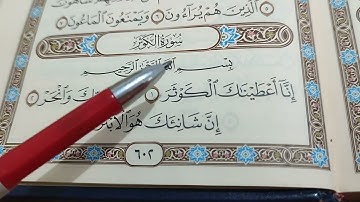 الَّذِينَ هُمْ يُرَآءُونَ ۝ وَيَمْنَعُونَ الْمَاعُونَ
سُورَةُ الْكَوْثَرِ
بِسْمِ اللَّهِ الرَّحِيمِ
إِنَّآ أَعْطَيْنَٰكَ الْكَوْثَرَ ۝ وَانْحَرْ ۝
إِنَّ شَانِئَكَ هُوَ الْأَبْتَرُ
٦٠٢